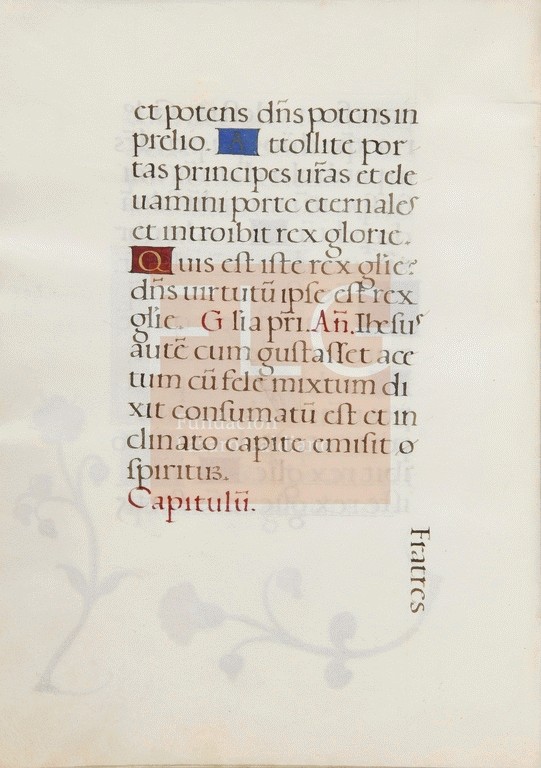 et potens dñs potens in
prelio. Attollite por
tas principes ur̃as et ele
uamini porte eternales
et introibit rex glorie.
Quis est iste rex glie?
dñs uirtutũ ipse est rex
glie. Glia pr̃i. Añ. Ihesus
autẽ cum gustasset ace
tum cũ fele mixtum di
xit consumatũ est et in
clinato capite emisit
spiritus.
Capitulũ.
Fratres
FLG
Fundación